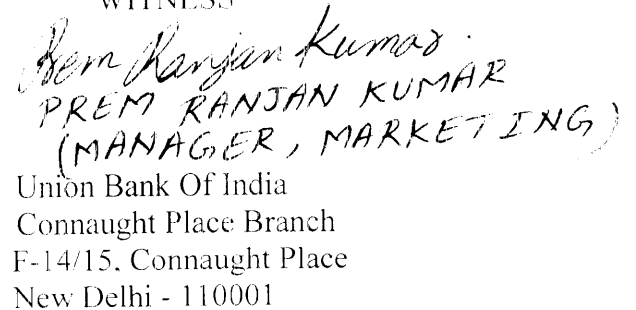 WITNESS
Prem Ranjan Kumar.
PREM RANJAN KUMAR
(MANAGER, MARKETING)
Union Bank Of India
Connaught Place Branch
F-14/15, Connaught Place
New Delhi - 110001